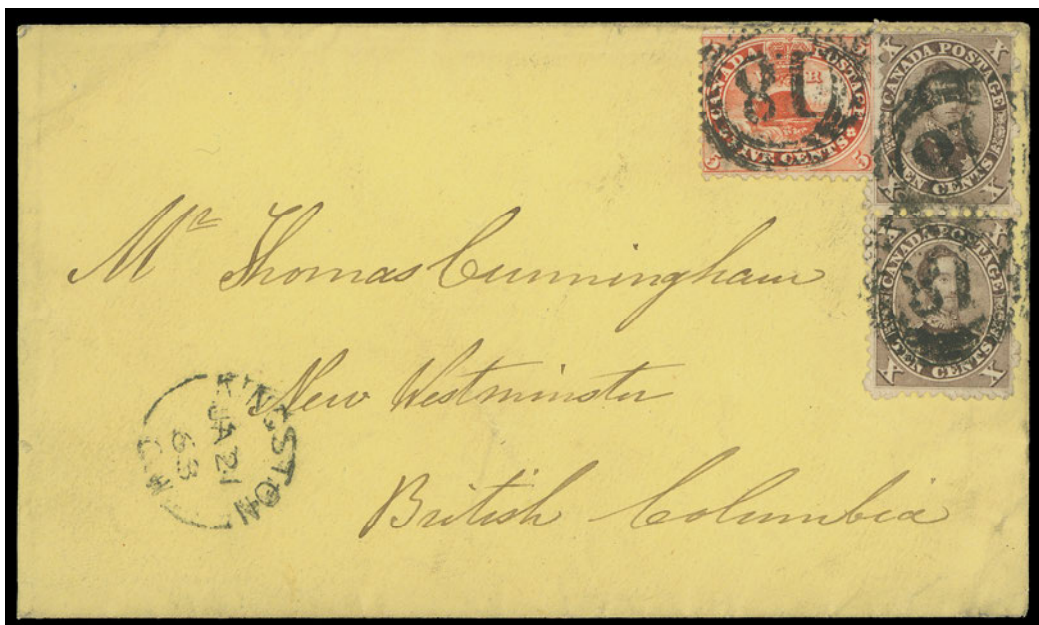 CANADA POSTAGE
FIVE CENTS
5 5
18
X X
CANADA POSTAGE
TEN CENTS
X X
18
X X
CANADA POSTAGE
TEN CENTS
X X
18
Mr Thomas Cunningham
New Westminster
British Columbia
KINGSTON
JA 21
63
C.W.